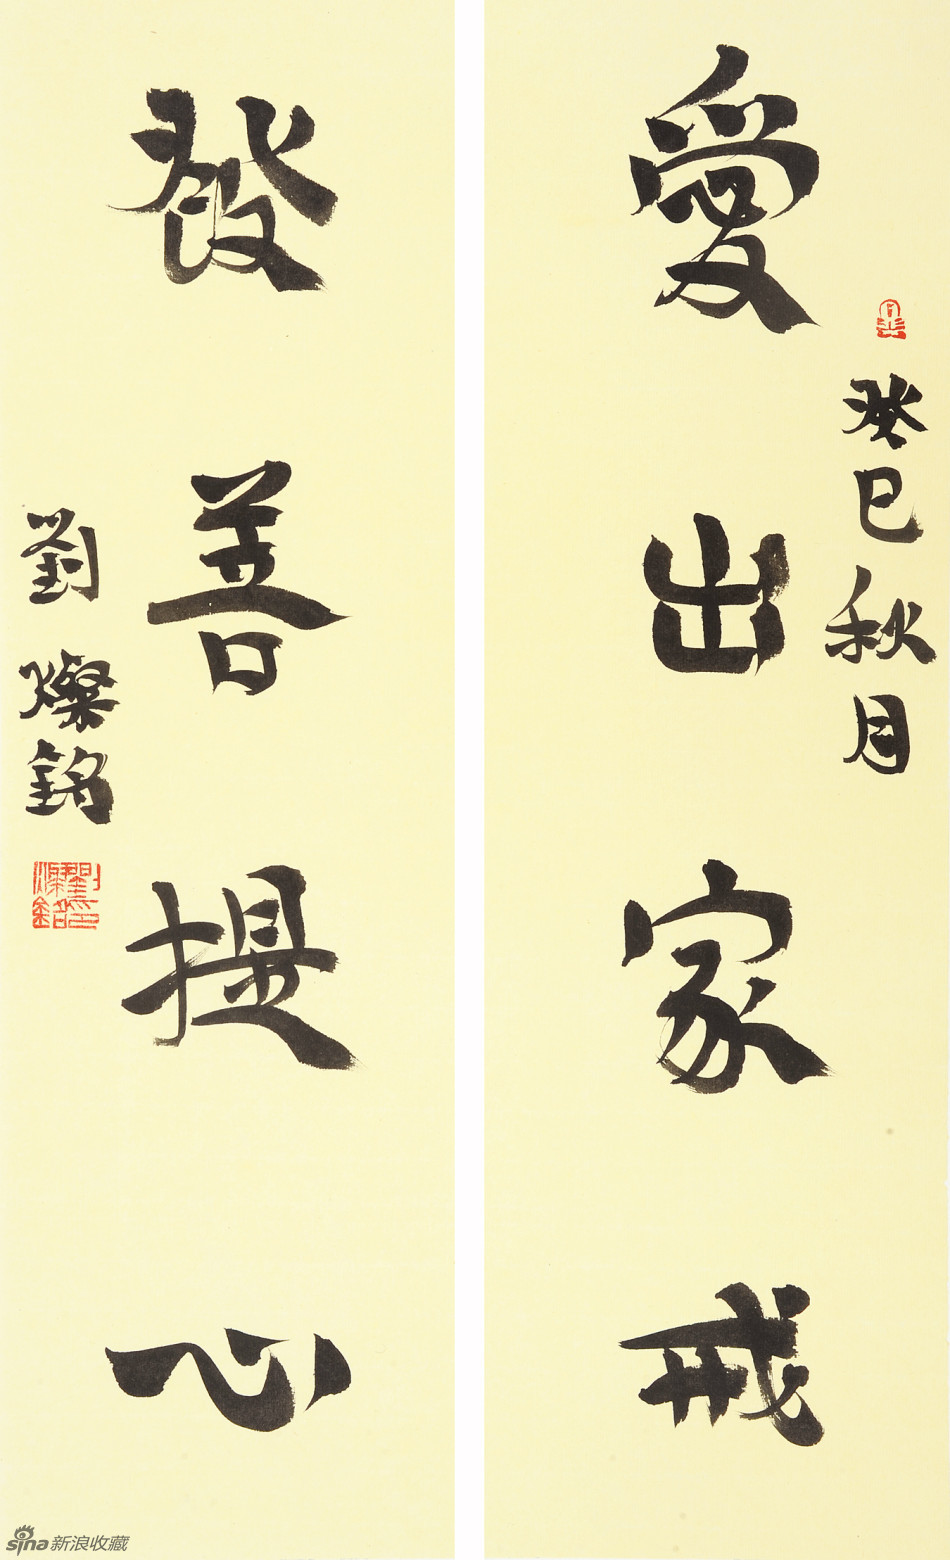 癸巳秋月
受出家戒
發菩提心
劉燦銘
劉燦銘印
sina新浪收藏